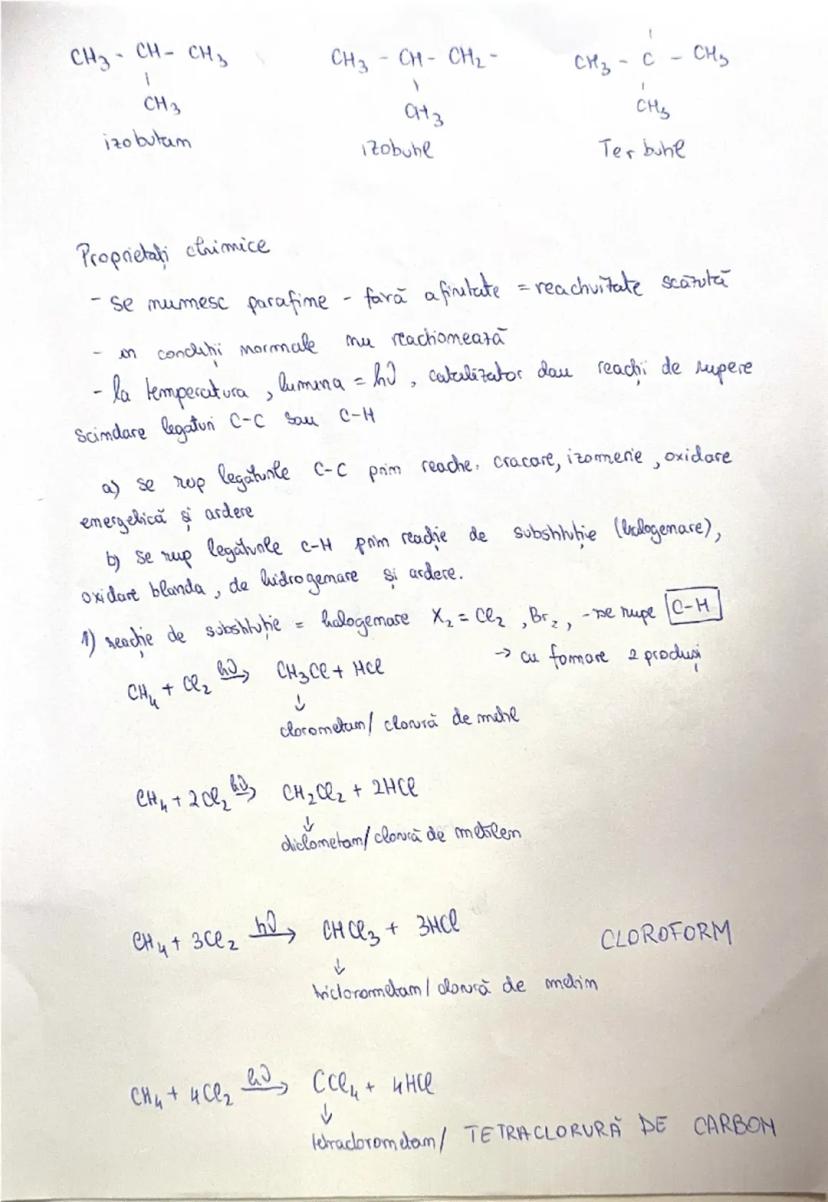 CH3 - CH - CH3    CH3 - CH - CH2 -    CH3 - C - CH3
CH3    CH3    CH3
izobutan    izobutil    Terbutil
Proprietati chimice
- se numesc parafine - fară afinitate = reactivitate scăzută
- in condiții normale nu reactionează
- la temperatura, lumina = hν, catalizator dau reacții de rupere
scindare legaturi C-C sau C-H
a) se rup legăturile C-C prin reactie. cracare, izomerie, oxidare
energetică și ardere
b) se rup legăturile C-H prin reacție de substituție (halogenare),
oxidare blanda, de hidrogenare și ardere.
1) reacție de substituție = halogenare X2 = Cl2, Br2, - se rupe C-H
→ cu formare 2 produși
CH4 + Cl2 hν→ CH3Cl + HCl
↓
clorometan/ clorură de metil
CH4 + 2Cl2 hν→ CH2Cl2 + 2HCl
↓
diclometan/ clorură de metilen
CH4 + 3Cl2 hν→ CHCl3 + 3HCl    CLOROFORM
↓
triclorometan/ clorură de metin
CH4 + 4Cl2 hν→ CCl4 + 4HCl
↓
tetraclorometan/ TETRACLORURĂ DE CARBON